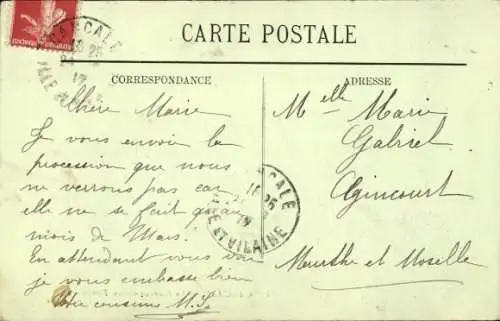 CARTE POSTALE
CORRESPONDANCE
ADRESSE
CANCALE
16 25
17
ILLE ET VILAINE
Chère Marie
Je vous envoie la
procession que nous
ne verrons pas car
elle ne se fait qu'au
mois de Mars!
En attendant vous voir
je vous embrasse bien
Votre cousine
Melle Marie
Gabriel
Agincourt
Meurthe et Moselle
CANCALE
16 25
ILLE ET VILAINE